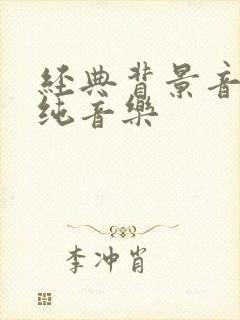 經典背景音
纯音樂
李冲肖